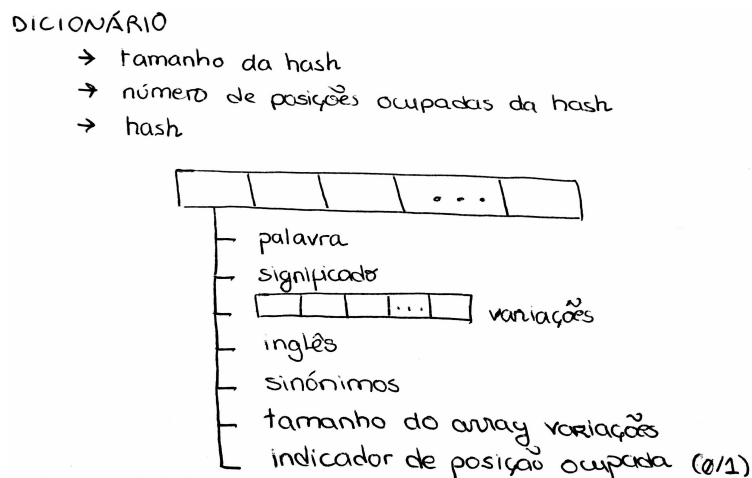 DICIONÁRIO
→ tamanho da hash
→ número de posições ocupadas da hash
→ hash
...
palavra
significado
... variações
inglês
sinónimos
tamanho do array variações
indicador de posição ocupada (0/1)